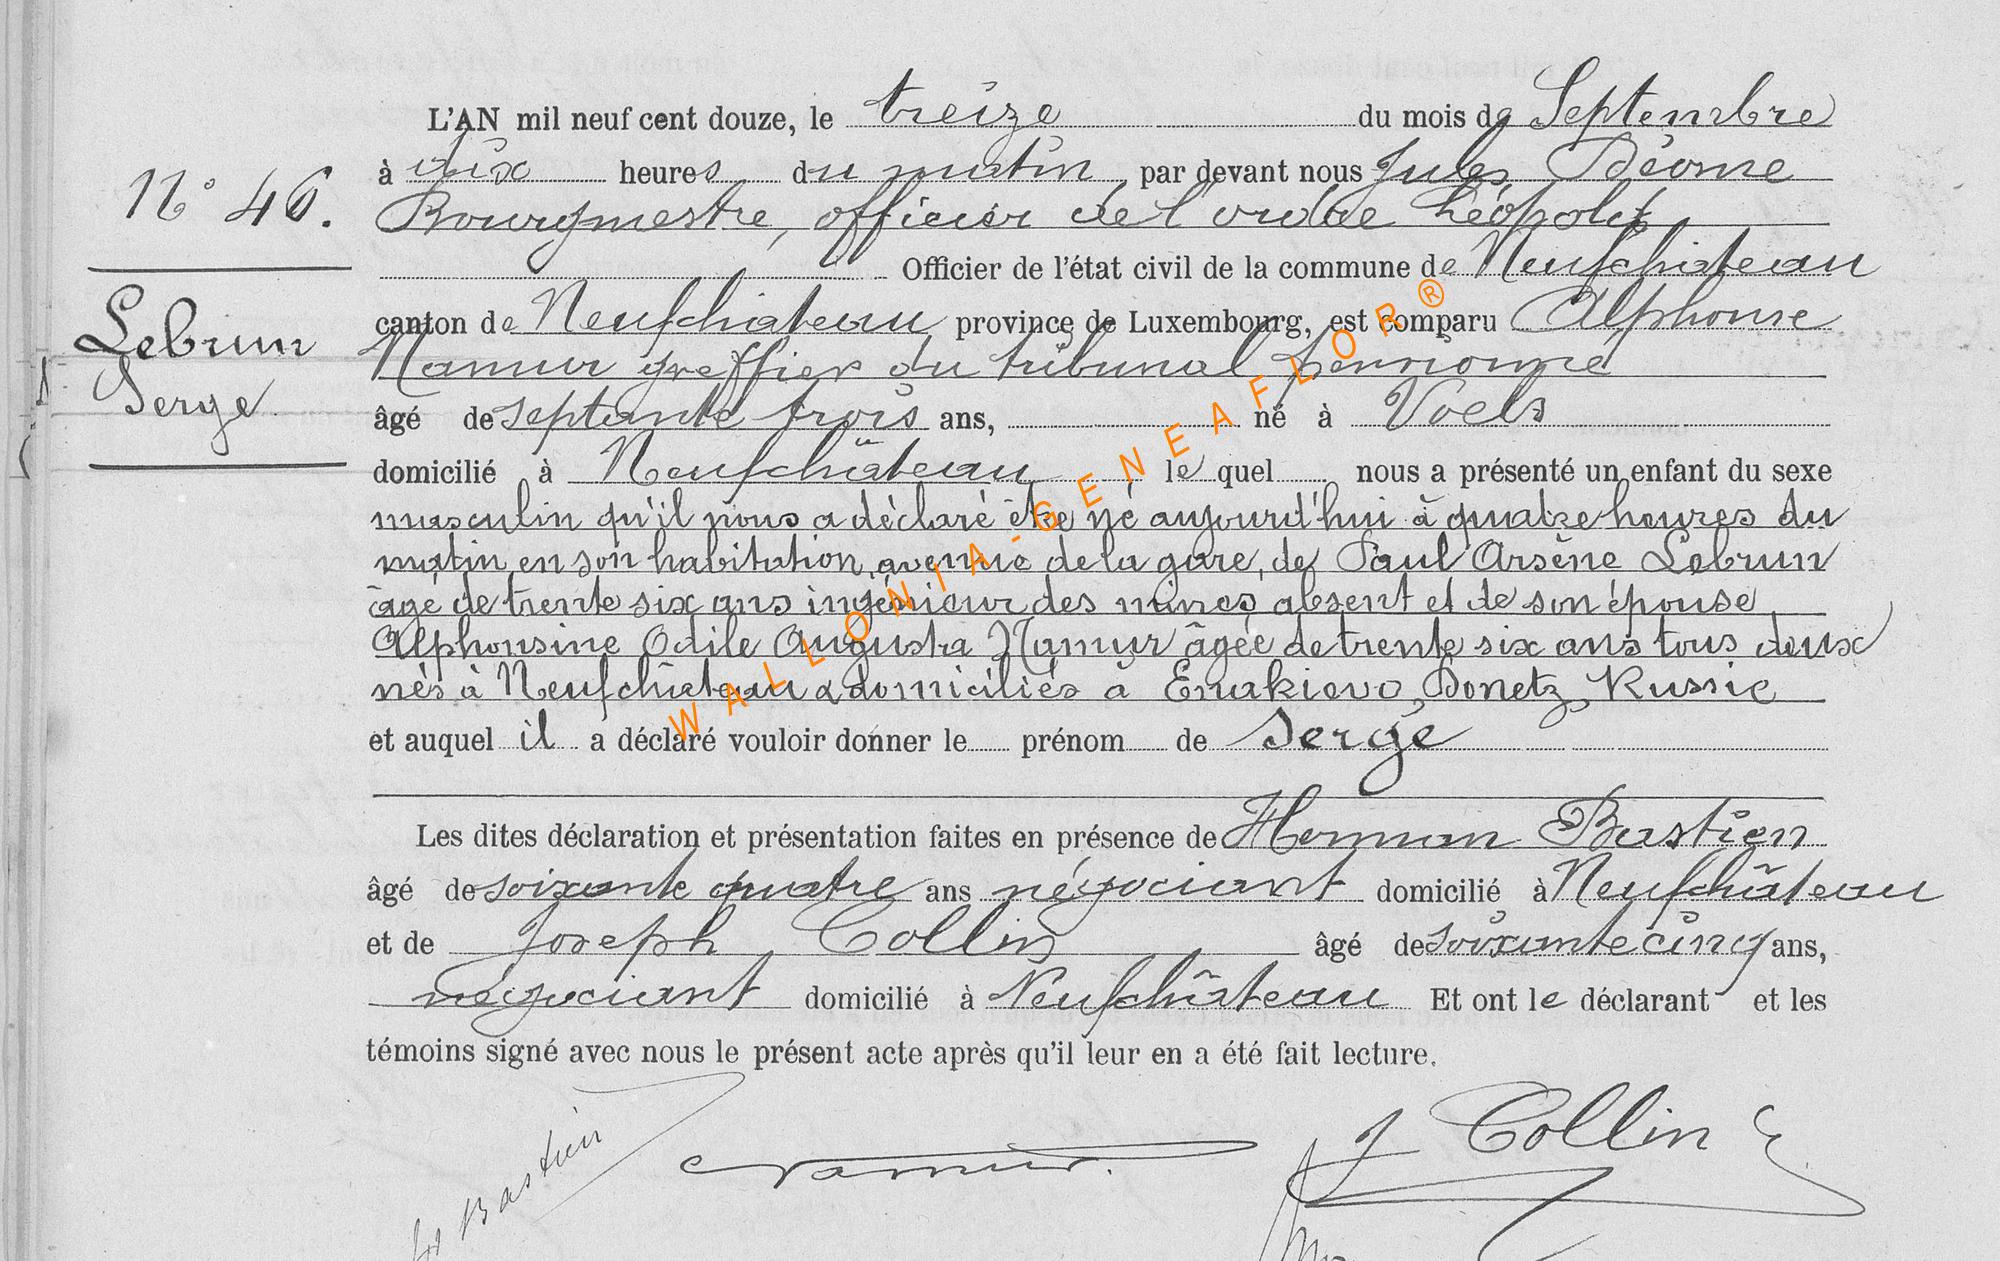 L'AN mil neuf cent douze, le treize du mois de Septembre
à dix heures du matin par devant nous Jules
N° 46.
Bourgmestre, officier de l'ordre Léopold
Officier de l'état civil de la commune de Neufchâteau
canton de Neufchateau province de Luxembourg, est comparu Alphonse
Lebrun
Serge
Namur greffier du tribunal pensionné
âgé de septante trois ans, né à
domicilié à Neufchâteau le quel nous a présenté un enfant du sexe
masculin qu'il nous a déclaré être né aujourd'hui à quatre heures du
matin en son habitation, avenue de la gare, de Paul Arsène Lebrun
âgé de trente six ans ingénieur des mines absent et de son épouse
Alphonsine Odile Augusta Namur âgée de trente six ans tous deux
nés à Neufchâteau & domiciliés à Enakievo Donetz Russie
et auquel il a déclaré vouloir donner le prénom de Serge
Les dites déclaration et présentation faites en présence de Herman Bastien
âgé de soixante quatre ans négociant domicilié à Neufchâteau
et de Joseph Collin âgé de soixante cinq ans,
négociant domicilié à Neufchâteau Et ont le déclarant et les
témoins signé avec nous le présent acte après qu'il leur en a été fait lecture.
Bastien
Namur.
J Collin
WALLONIA-GENEAFLOR®